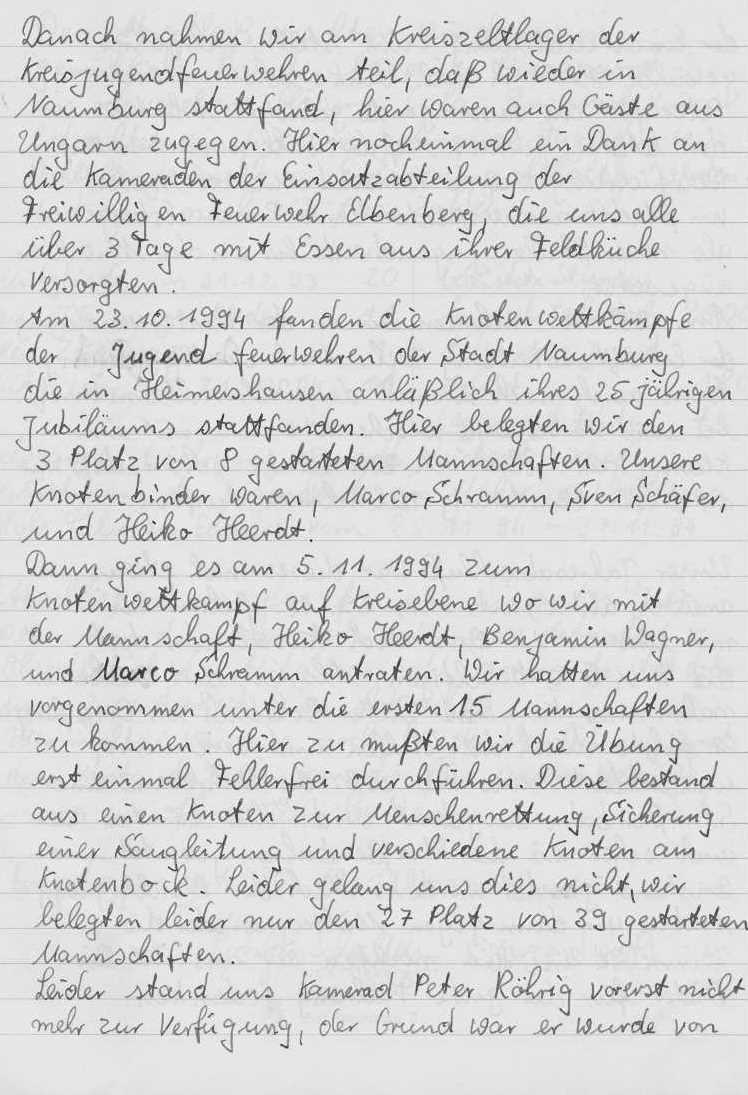 Danach nahmen wir am Kreiszeltlager der
Kreisjugendfeuerwehren teil, daß wieder in
Naumburg stattfand, hier waren auch Gäste aus
Ungarn zugegen. Hier nocheinmal ein Dank an
die Kameraden der Einsatzabteilung der
Freiwilligen Feuerwehr Elbenberg, die uns alle
über 3 Tage mit Essen aus ihrer Feldküche
versorgten.
Am 23.10.1994 fanden die Knotenwettkämpfe
der Jugend feuerwehren der Stadt Naumburg
die in Heimershausen anläßlich ihres 25 jährigen
Jubiläums stattfanden. Hier belegten wir den
3 Platz von 8 gestarteten Mannschaften. Unsere
Knotenbinder waren, Marco Schramm, Sven Schäfer,
und Heiko Heerdt.
Dann ging es am 5.11.1994 zum
Knotenwettkampf auf Kreisebene wo wir mit
der Mannschaft, Heiko Heerdt, Benjamin Wagner,
und Marco Schramm antraten. Wir hatten uns
vorgenommen unter die ersten 15 Mannschaften
zu kommen. Hier zu mußten wir die Übung
erst einmal Fehlerfrei durchführen. Diese bestand
aus einen Knoten zur Menschenrettung, Sicherung
einer Saugleitung und verschiedene Knoten am
Knotenbock. Leider gelang uns dies nicht, wir
belegten leider nur den 27 Platz von 39 gestarteten
Mannschaften.
Leider stand uns Kamerad Peter Röhrig vorerst nicht
mehr zur Verfügung, der Grund war er wurde von